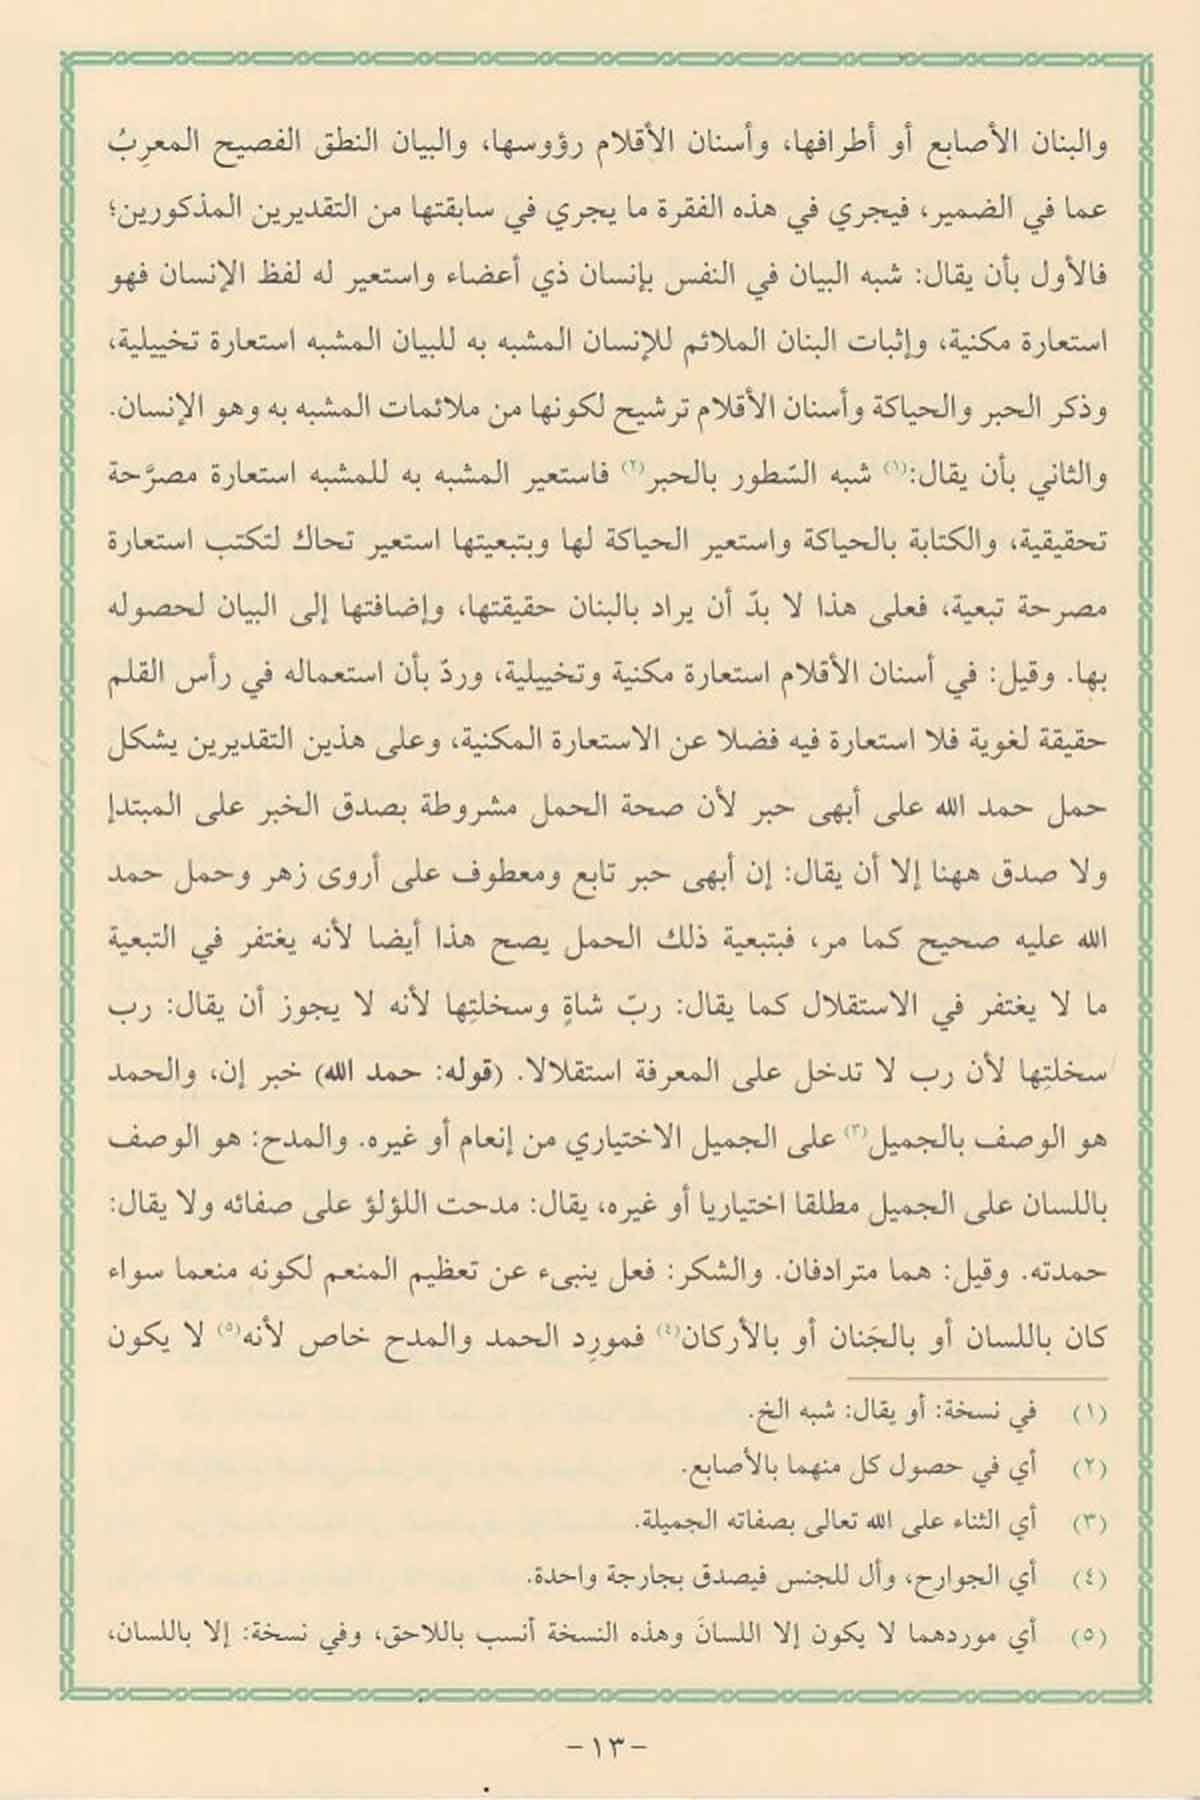 والبنان الأصابع أو أطرافها، وأسنان الأقلام رؤوسها، والبيان النطق الفصيح المعرِبُ
عما في الضمير، فيجري في هذه الفقرة ما يجري في سابقتها من التقديرين المذكورين؛
فالأول بأن يقال: شبه البيان في النفس بإنسان ذي أعضاء واستعير له لفظ الإنسان فهو
استعارة مكنية، وإثبات البنان الملائم للإنسان المشبه به للبيان المشبه استعارة تخييلية،
وذكر الحبر والحياكة وأسنان الأقلام ترشيح لكونها من ملائمات المشبه به وهو الإنسان.
والثاني بأن يقال:(١) شبه السّطور بالحبر(٢) فاستعير المشبه به للمشبه استعارة مصرَّحة
تحقيقية، والكتابة بالحياكة واستعير الحياكة لها وبتبعيتها استعير تحاك لتكتب استعارة
مصرحة تبعية، فعلى هذا لا بدّ أن يراد بالبنان حقيقتها، وإضافتها إلى البيان لحصوله
بها. وقيل: في أسنان الأقلام استعارة مكنية وتخييلية، وردّ بأن استعماله في رأس القلم
حقيقة لغوية فلا استعارة فيه فضلا عن الاستعارة المكنية، وعلى هذين التقديرين يشكل
حمل حمد الله على أبهى حبر لأن صحة الحمل مشروطة بصدق الخبر على المبتدإ
ولا صدق ههنا إلا أن يقال: إن أبهى حبر تابع ومعطوف على أروى زهر وحمل حمد
الله عليه صحيح كما مر، فبتبعية ذلك الحمل يصح هذا أيضا لأنه يغتفر في التبعية
ما لا يغتفر في الاستقلال كما يقال: ربّ شاةٍ وسخلتِها لأنه لا يجوز أن يقال: رب
سخلتِها لأن رب لا تدخل على المعرفة استقلالا. (قوله: حمد الله) خبر إن، والحمد
هو الوصف بالجميل(٣) على الجميل الاختياري من إنعام أو غيره. والمدح: هو الوصف
باللسان على الجميل مطلقا اختياريا أو غيره، يقال: مدحت اللؤلؤ على صفائه ولا يقال:
حمدته. وقيل: هما مترادفان. والشكر: فعل ينبىء عن تعظيم المنعم لكونه منعما سواء
كان باللسان أو بالجَنان أو بالأركان(٤) فمورِد الحمد والمدح خاص لأنه(٥) لا يكون
(١) في نسخة: أو يقال: شبه الخ.
(٢) أي في حصول كل منهما بالأصابع.
(٣) أي الثناء على الله تعالى بصفاته الجميلة.
(٤) أي الجوارح، وأل للجنس فيصدق بجارحة واحدة.
(٥) أي موردهما لا يكون إلا اللسانَ وهذه النسخة أنسب باللاحق، وفي نسخة: إلا باللسان،
-١٣-